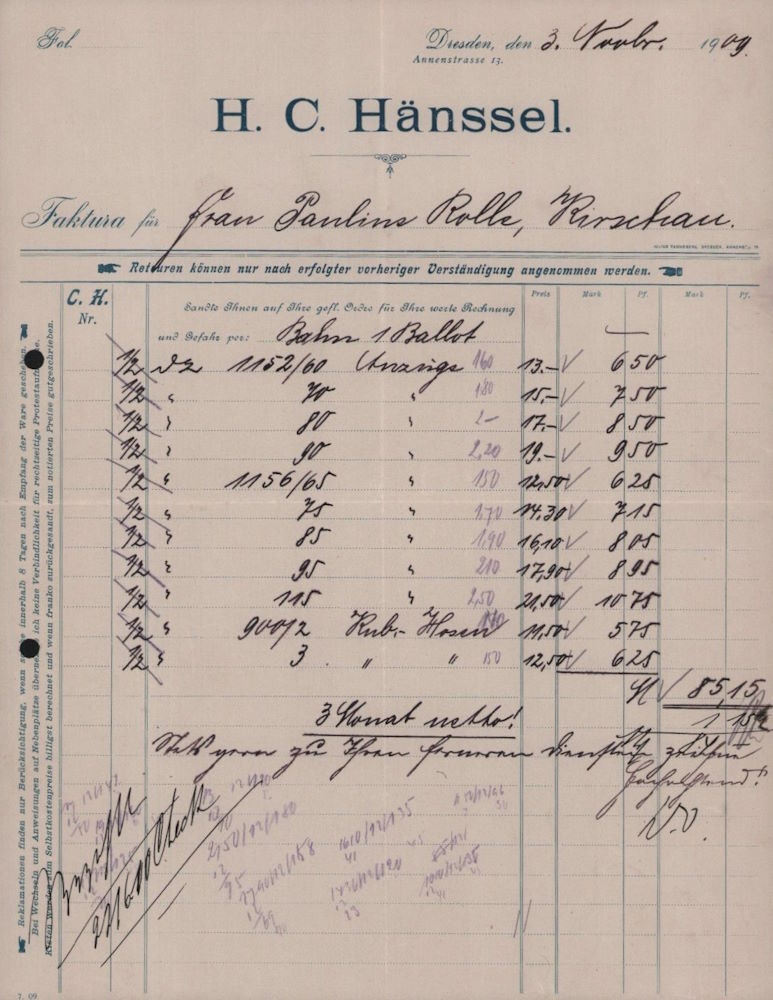 Fol.
Dresden, den 3. Novbr. 1909.
Annenstrasse 13.
H. C. Hänssel.
Faktura für Frau Pauline Rolle, Kirschau.
Retouren können nur nach erfolgter vorheriger Verständigung angenommen werden.
C. H. Preis Mark Pf. Mark Pf.
Nr.
Sandte Ihnen auf Ihre gefl. Ordre für Ihre werte Rechnung
und Gefahr per: Bahn 1 Ballot —
1/2 Dz 1152/60 Anzüge 160 13.- 6 50
1/2 " 70 " 180 15.- 7 50
1/2 " 80 " 2- 17.- 8 50
1/2 " 90 " 2,20 19.- 9 50
1/2 " 1156/65 " 150 12,50 6 25
1/2 " 75 " 1,70 14.30 7 15
1/2 " 85 " 1,90 16,10 8 05
1/2 " 95 " 210 17,90 8 95
1/2 " 115 " 2,50 21,50 10 75
1/2 " 900/2 Knb.- Hosen 11,50 5 75
1/2 " 3 " " 150 12,50 6 25
M 85,15
3 Monat netto! 1 15
Stets gern zu Ihren ferneren Diensten
Hochachtend!
D.O.
Reklamationen finden nur Berücksichtigung, wenn sie innerhalb 8 Tagen nach Empfang der Ware geschehen.
Bei Wechseln und Anweisungen auf Nebenplätze übernehme ich keine Verbindlichkeit für rechtzeitige Protestaufnahme.
Kisten werden zum Selbstkostenpreise billigst berechnet und wenn franko zurückgesandt, zum notierten Preise gutgeschrieben.
7. 09.